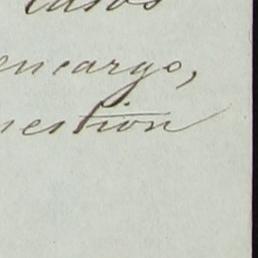 casos
encargo,
uestion